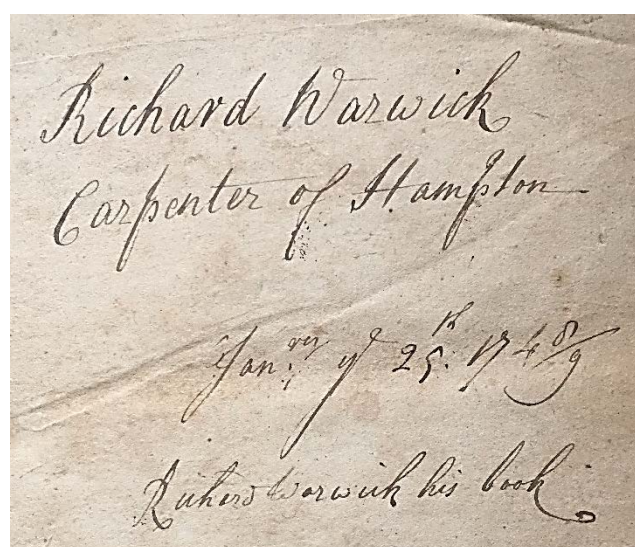 Richard Warwick
Carpenter of Hampton
Jan:ry ye 25:th 174 8/9
Richard Warwick his book